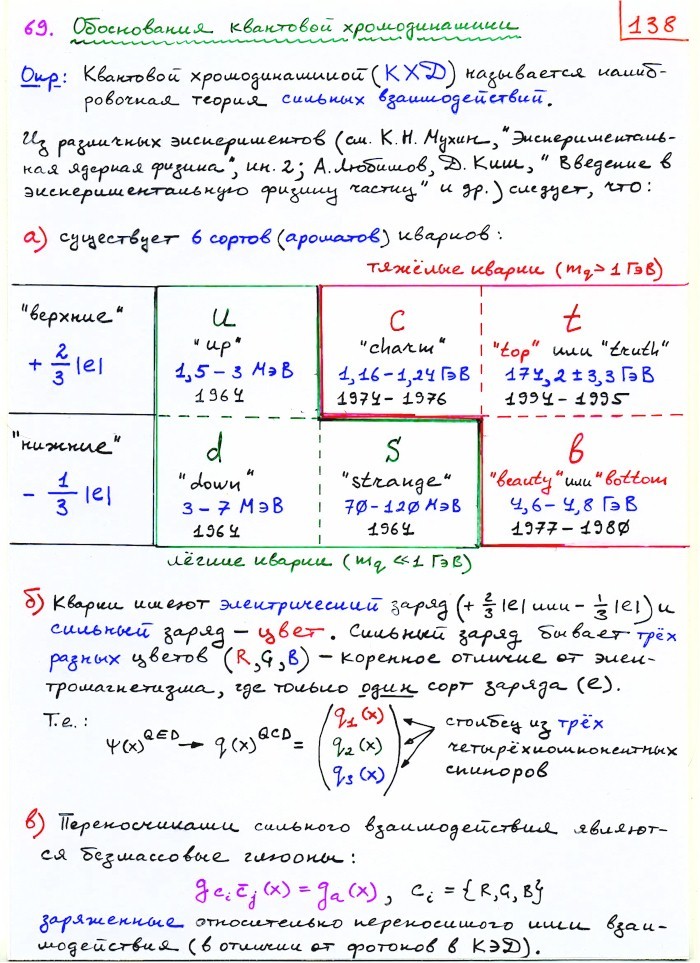 69. Обоснования квантовой хромодинамики
138
Опр: Квантовой хромодинамикой (КХД) называется калиб-
ровочная теория сильных взаимодействий.
Из различных экспериментов (см. К.Н. Мухин, "Эксперименталь-
ная ядерная физика", кн. 2; А. Любимов, Д. Киш, "Введение в
экспериментальную физику частиц" и др.) следует, что:
а) существует 6 сортов (ароматов) кварков:
тяжёлые кварки (m_q > 1 ГэВ)
"верхние" u c t
"up" "charm" "top" или "truth"
+ 2/3 |e| 1,5 – 3 МэВ 1,16 – 1,24 ГэВ 174,2 ± 3,3 ГэВ
1964 1974 – 1976 1994 – 1995
"нижние" d s b
"down" "strange" "beauty" или "bottom"
– 1/3 |e| 3 – 7 МэВ 70 – 120 МэВ 4,6 – 4,8 ГэВ
1964 1964 1977 – 1980
лёгкие кварки (m_q ≪ 1 ГэВ)
б) Кварки имеют электрический заряд (+ 2/3 |e| или – 1/3 |e|) и
сильный заряд – цвет. Сильный заряд бывает трёх
разных цветов (R, G, B) – коренное отличие от элек-
тромагнетизма, где только один сорт заряда (e).
Т.е.: ψ(x)^QED → q(x)^QCD = (q₁(x) q₂(x) q₃(x)) столбец из трёх
четырёхкомпонентных
спиноров
в) Переносчиками сильного взаимодействия являют-
ся безмассовые глюоны:
g_{c_i c̄_j}(x) = g_a(x), c_i = {R, G, B}
заряженные относительно переносимого ими взаи-
модействия (в отличии от фотонов в КЭД).